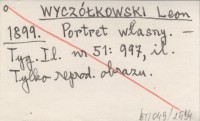 WYCZÓŁKOWSKI Leon
1899. Portret własny. —
Tyg. Il. nr 51: 997, il.
Tylko reprod. obrazu.